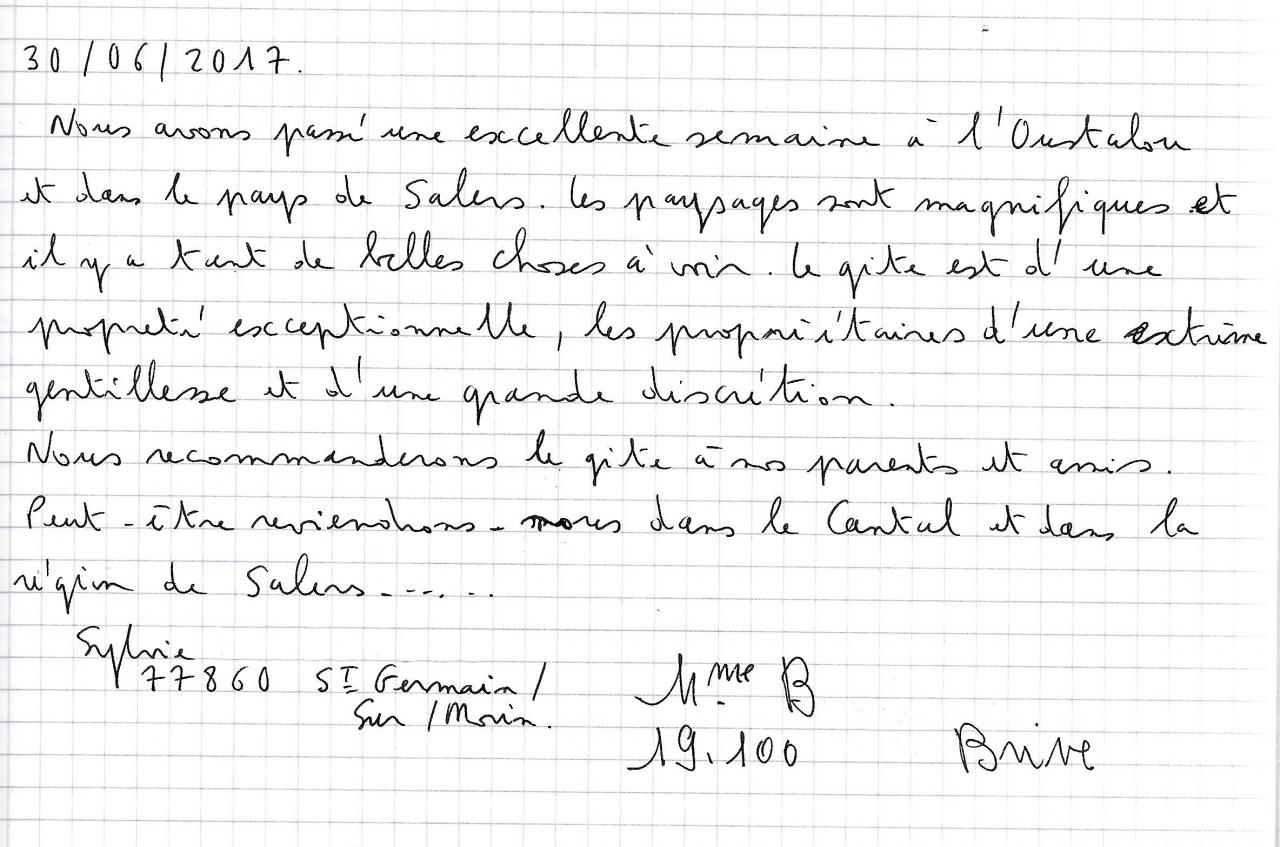 30/06/2017.
Nous avons passé une excellente semaine à l'Oustalou
et dans le pays de Salers. Les paysages sont magnifiques et
il y a tant de belles choses à voir. Le gite est d'une
propreté excceptionnelle, les propriétaires d'une extrême
gentillesse et d'une grande discrétion.
Nous recommanderons le gite à nos parents et amis.
Peut-être reviendrons-nous dans le Cantal et dans la
région de Salers------
Sylvie
77860 St Germain/
Sur/Morin.
Mme B
19.100 Brive